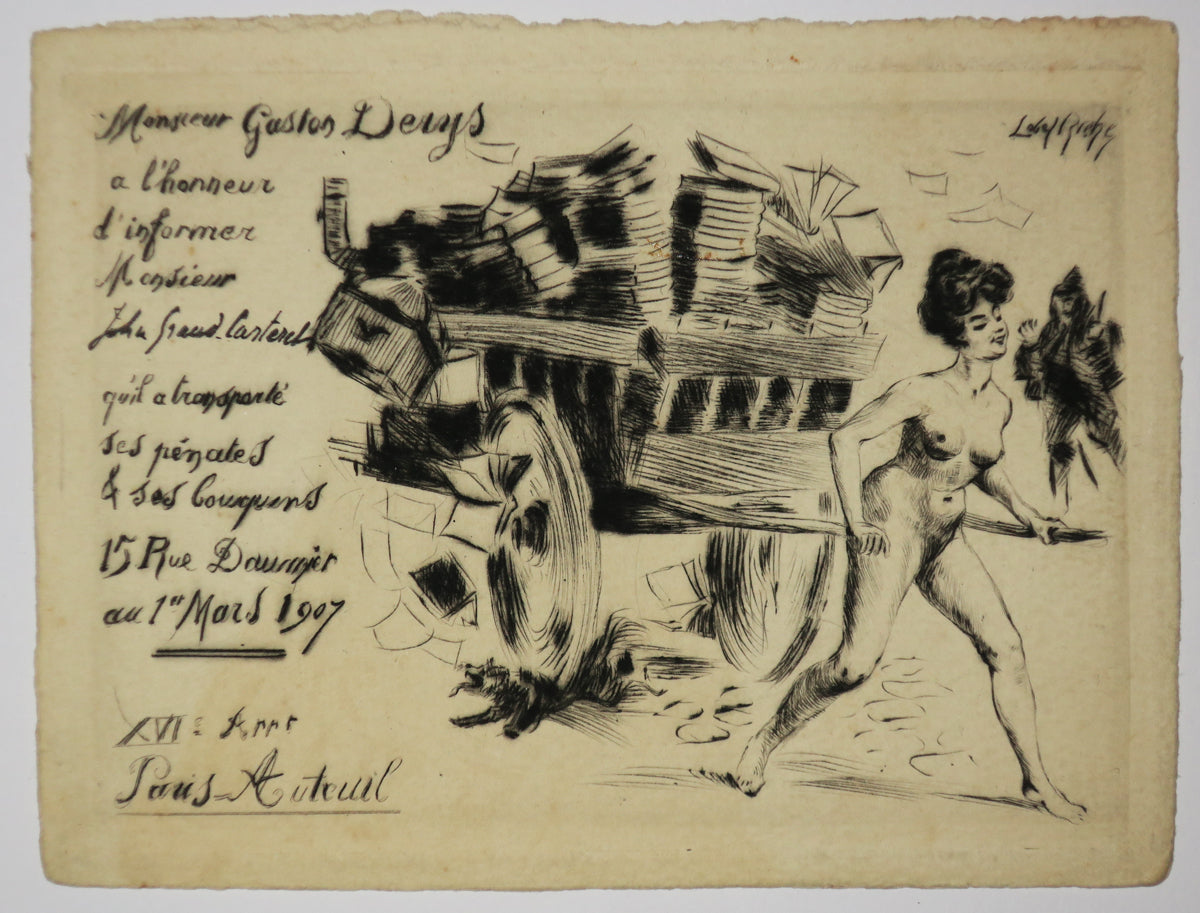 Monsieur Gaston Derys
a l'honneur
d'informer
Monsieur
John Grand-Carteret
qu'il a transporté
ses pénates
& ses bouquins
15 Rue Daumier
au 1er Mars 1907
XVIe Arrt
Paris-Auteuil